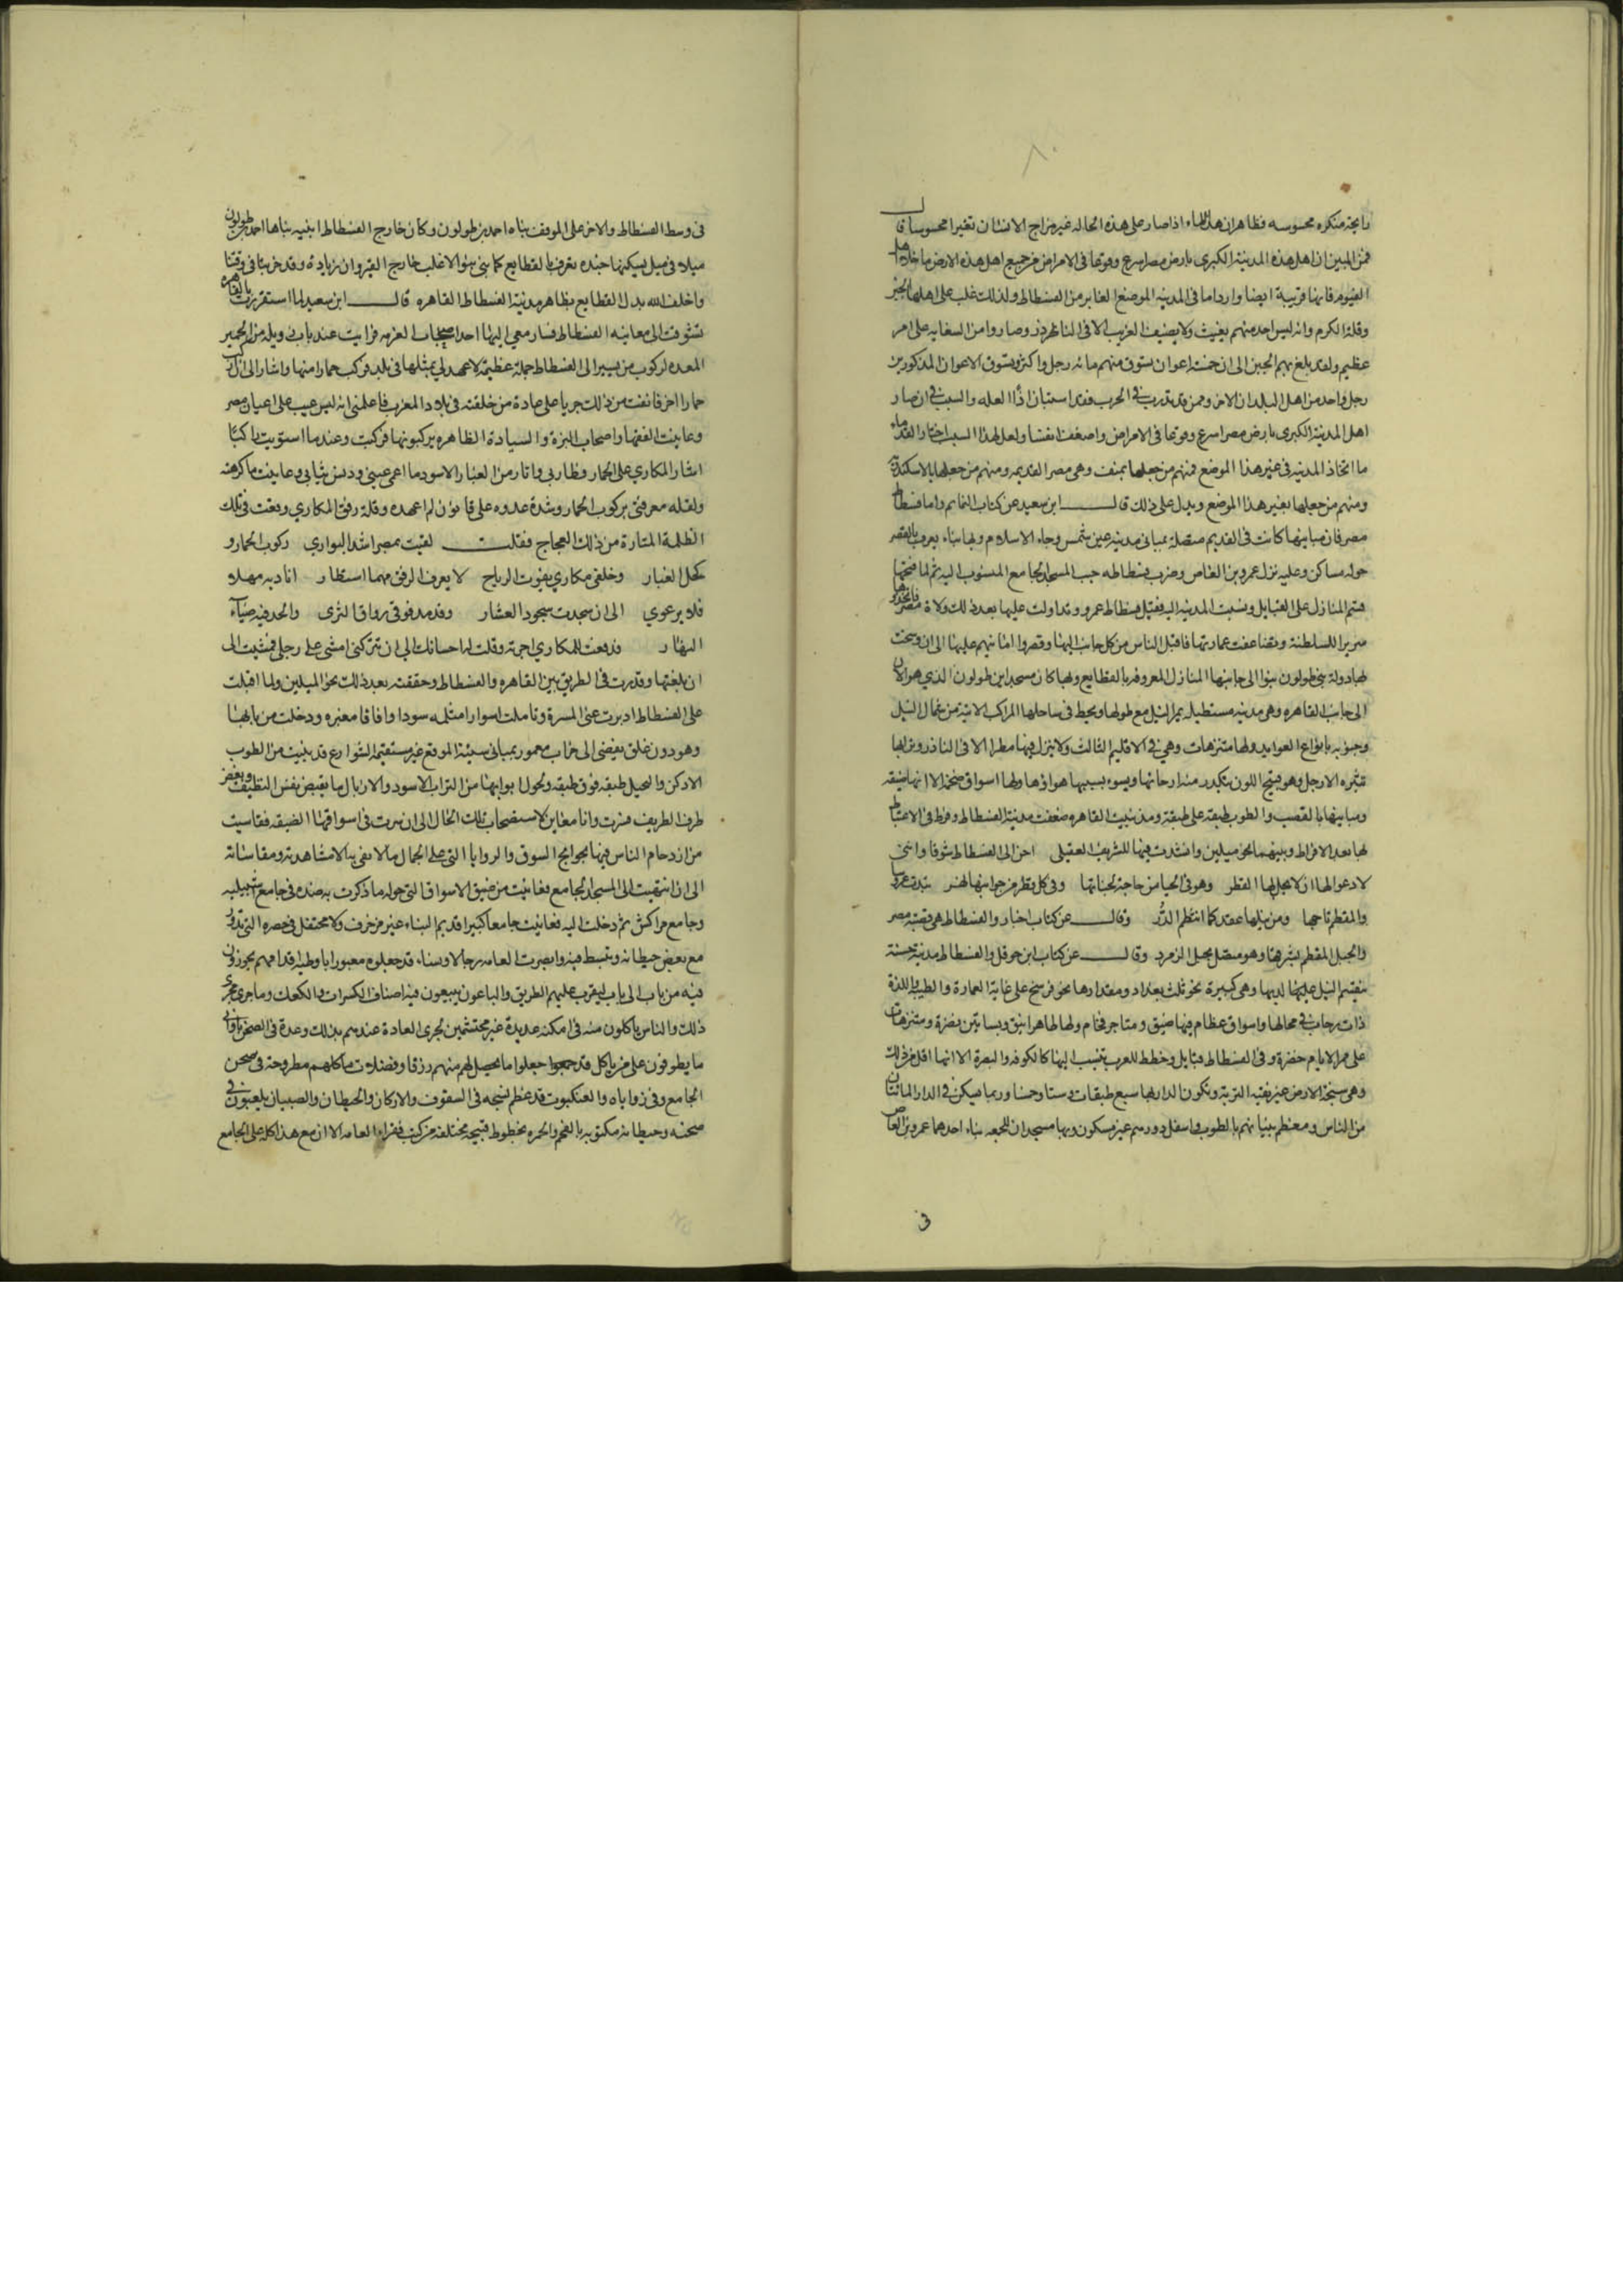 رايحة منكره محسوسه فظاهر ان هذا الماء اذا صار على هذه الحاله غير مزاج الانسان تغيرا محسوسا قال
فمن البين ان اهل هذه المدينة الكبرى بارض مصر اسرع وقوعا في الامراض من جميع اهل هذه الارض ما خلا اهل
الفيوم فانها قريبة ايضا واردا ما في المدينه الموضع الغابر من الفسطاط ولذلك غلب على اهلها الجبن
وقلة الكرم وانه ليس احد منهم يغيث ولا يضيف الغريب الا في النادر وصاروا من السعايه على امر
عظيم ولقد بلغ بهم الجبن الى ان خمسة اعوان تسوق منهم مائه رجل واكثر ويسوق الاعوان المذكورين
رجل واحد من اهل البلدان الاخر وممن قد تدرب في الحرب فقد استبان اذا العله والسبب في ان صار
اهل المدينة الكبرى بارض مصر اسرع وقوعا في الامراض واضعف انفسا ولعل لهذا السبب اختار القدماء
ما اتخاذ المدينه في غير هذا الموضع فمنهم من جعلها بمنف وهي مصر القديمه ومنهم من جعلها بالاسكندرية
ومنهم من جعلها بغير هذا الموضع ويدل على ذلك قال ابن سعيد عن كتاب الكمايم واما فسطاط
مصر فان مبانيها كانت في القديم متصلة بمباني مدينه عين شمس وجاء الاسلام وبها بناء يعرف بالقصر
حوله مساكن وعليه نزل عمرو بن العاص وضرب فسطاطه حيث المسجد الجامع المنسوب اليه ثم لما فتحها
قسم المنازل على القبايل ونسبت المدينه اليه فقيل فسطاط عمرو وتداولت عليها بعد ذلك ولاة مصر فاتخذوها
سريرا للسلطنة وتضاعفت عمارتها فاقبل الناس من كل جانب اليها وقصروا امانيهم عليها الى ان رسخت
بها دولة بني طولون فبنوا الى جانبها المنازل المعروفه بالقطايع وبها كان مسجد ابن طولون الذي هو الان
الى جانب القاهره وهي مدينه مستطيله يمر النيل مع طولها ويحط في ساحلها المراكب الاتية من شمال النيل
وجنوبه بانواع الفوايد ولها متنزهات وهي في الاقليم الثالث ولا ينزل فيها مطر الا في النادر وترابها
تثيره الارجل وهو قبيح اللون يتكدر منه ارجاؤها ويسوء بسببها هواؤها ولها اسواق ضخمه الا انها ضيقه
ومبانيها بالقصب والطوب طبقه على طبقة ومذ بنيت القاهره ضعفت مدينة الفسطاط وفرط في الاغتباط
بها بعد الافراط وبينهما نحو ميلين وانشدت فيها للشريف العقيلي احن الى الفسطاط شوقا وانني
لادعو لها ان لا يحل بها القطر وهو في الحيا من حاجة لجنابها وفي كل قطر من جوانبها نهر تبدت عروسا
والمقطم تاجها ومن نيلها عقد كما انتظم الدر وقال عن كتاب اخبار والفسطاط هي قصبة مصر
والجبل المقطم شرقها وهو متصل بجبل الزمرد وقال عن كتاب ابن حوقل والفسطاط مدينة حسنة
ينقسم النيل عليها لديها وهي كبيرة نحو ثلث بغداد ومقدارها نحو فرسخ على غاية العمارة والطيب واللذة
ذات رحاب في محالها واسواق عظام فيها ضيق ومتاجر فخام ولها ظاهر انيق وبساتين نضرة ومتنزهات
على ممر الايام خضرة وفي الفسطاط قبايل وخطط للعرب تنسب اليها كالكوفه والبصرة الا انها اقل من ذلك
وهي سبخة الارض غير نقيه التربة وتكون الدار بها سبع طبقات وستا وخمسا وربما يسكن في الدار المائتان
من الناس ومعظم بنيانهم بالطوب واسفل دورهم غير مسكون وبها مسجدان للجمعه بناء احدهما عمرو بن العاص
في وسط الفسطاط والاخر على الموقف بناه احمد بن طولون وكان خارج الفسطاط ابنيه بناها احمد بن طولون
ميلا في ميل يسكنها جنده تعرف بالقطايع كما بني بنو الاغلب خارج القيروان بزيادة وقد خربتا في وقتنا
واخلف الله بدل القطايع بظاهر مدينة الفسطاط القاهره قال ابن سعيد لما استقررت بالقاهره
تشوقت الى معاينه الفسطاط فسار معي اليها احد اصحاب العزمه فرايت عند باب زويله من الحمير
المعده لركوب من يسير الى الفسطاط جملة عظيمة لا عهد لي بمثلها في بلد فركب حمارا منها واشار الى ان اركب
حمارا اخر فانفت من ذلك جريا على عادة من خلفته في بلاد المغرب فاعلمني انه ليس عيب على اعيان مصر
وعاينت الفقها واصحاب البزة والسيادة الظاهره يركبونها فركبت وعندما استويت راكبا
اشار المكاري على الحمار وطار بي واثار من الغبار الاسود ما اعمى عيني ودنس ثيابي وعاينت ما كرهته
ولقله معرفتي بركوب الحمار وشدة عدوه على قانون لم اعهده وقلة رفق المكاري وقعت في تلك
الظلمة المثارة من ذلك العجاج فقلت لقيت بمصر اشد البوار ركوب الحمار و
كحل الغبار وخلفي مكاري يفوت الرياح لا يعرف الرفق مهما استطار اناديه مهلا
فلا يرعوي الى ان سجدت سجود العثار وقد مد فوقي رواق الثرى والحد فيه ضياء
النهار فدفعت للمكاري اجرته وقلت له احسانك الي ان تتركني امشي على رجلي فمشيت الى
ان بلغتها وقدرت في الطريق بين القاهره والفسطاط وحققته بعد ذلك نحو الميلين ولما اقبلت
على الفسطاط ادبرت عني المسرة وتاملت اسوارا مثلمه سودا وافاقا مغبره ودخلت من بابها
وهو دون غلق يفضي الى خراب معمور بمباني سيئة الموقع غير مستقيمه الشوارع قد بنيت من الطوب
الادكن والنخيل طبقه فوق طبقه وحول ابوابها من التراب الاسود والازبال ما يقبض نفس النظيف ويغض
طرف الظريف فسرت وانا معاين لاستصحاب تلك الحال الى ان سرت في اسواقها الضيقه فقاسيت
من ازدحام الناس فيها بحوايج السوق والروايا التي على الجمال ما لا يفي به الا مشاهدته ومقاساته
الى ان انتهيت الى المسجد الجامع فعاينت من ضيق الاسواق التي حوله ما ذكرت به ضده في جامع اشبيليه
وجامع مراكش ثم دخلت اليه فعاينت جامعا كبيرا قديم البناء غير مزخرف ولا محتفل في حصره التي تدور
مع بعض حيطانه وتبسط فيه وابصرت العامه رجالا ونساء قد جعلوه معبورا باوطية اقدامهم يجوزون
فيه من باب الى باب ليقرب عليهم الطريق والباعون يبيعون فيه اصناف الكسرات والكعك وما جرى مجرى
ذلك والناس ياكلون منه في امكنه عديدة غير محتشمين لجرى العادة عندهم بذلك وعدة في الصحن باواني
ما يطوفون على من ياكل قد جعلوا ما يحصل لهم منهم رزقا وفضلات ماكلهم مطروحة في صحن
الجامع وفي زواياه والعنكبوت قد عظم نسجه في السقوف والاركان والحيطان والصبيان يلعبون في
صحنه وحيطانه مكتوبه بالفحم والحمره بخطوط قبيحه مختلفه من كتب فقراء العامه الا ان مع هذا كله على الجامع